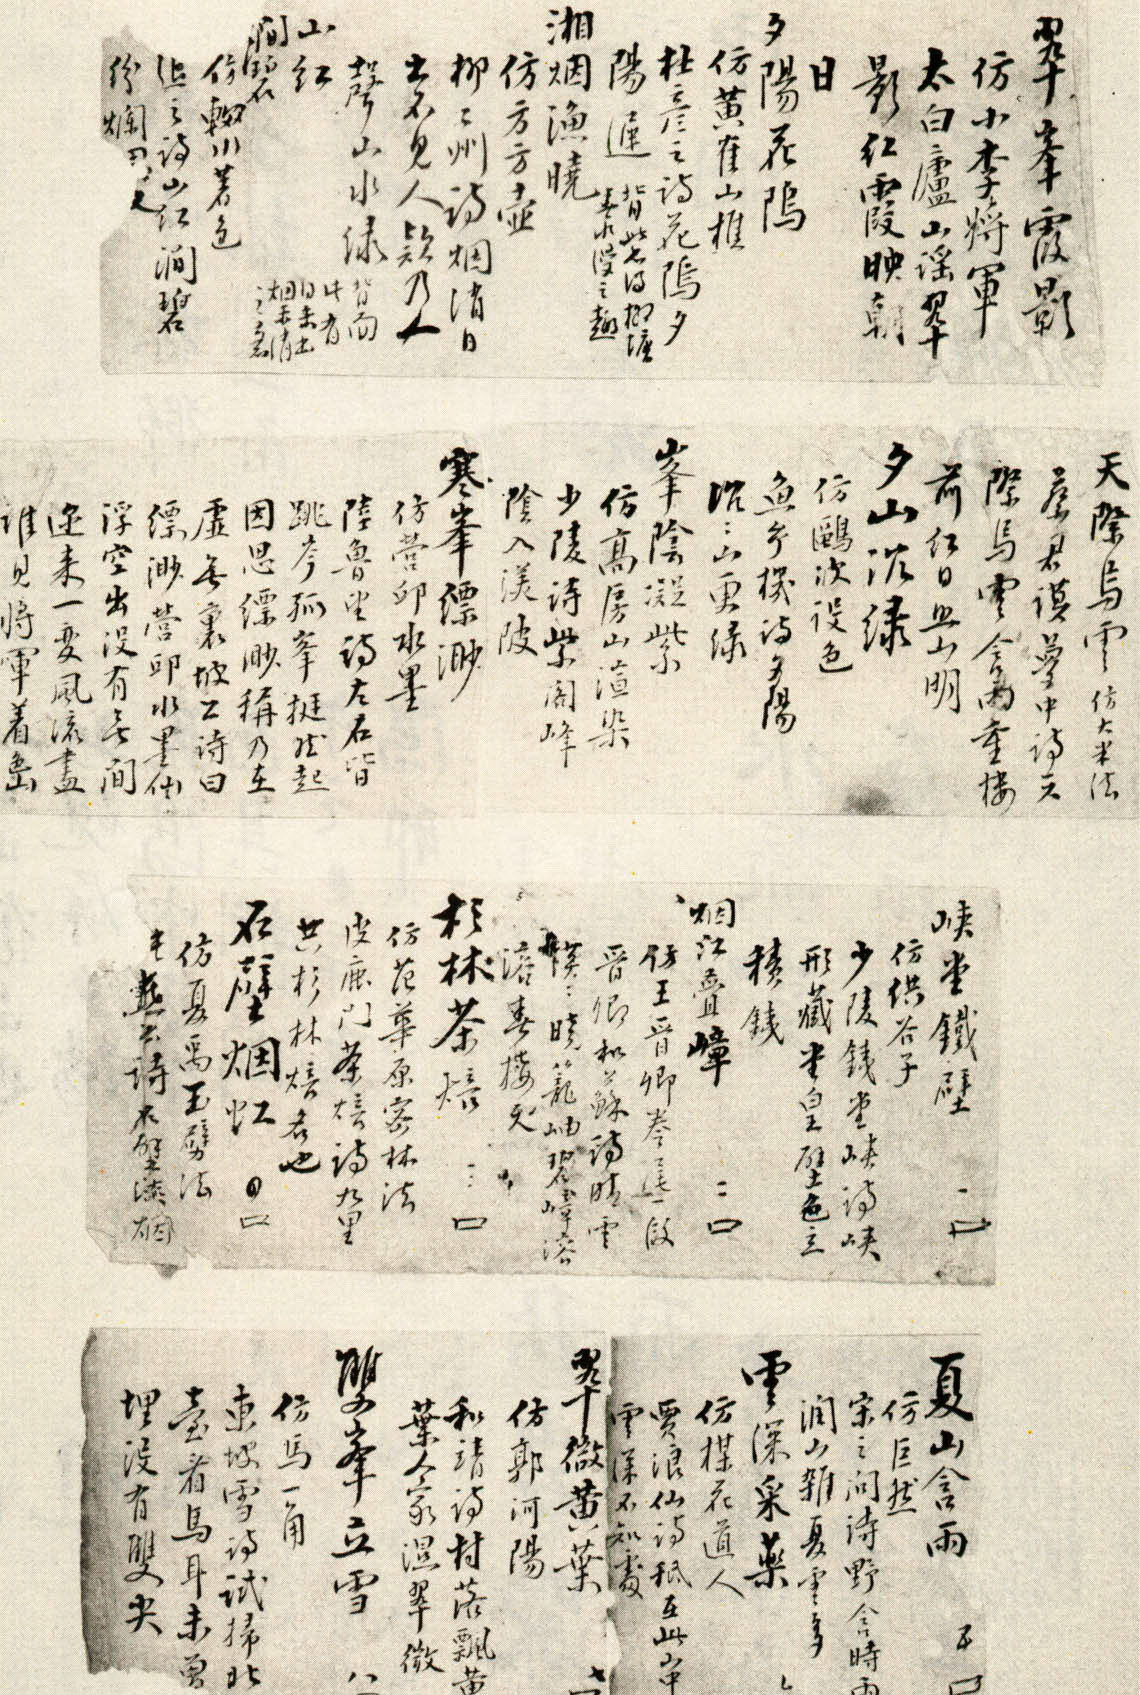 翠峯霞影
仿小李將軍
太白廬山謠翠
影紅霞映朝
日
夕陽花隖
仿黃隺山樵
杜彥之詩花隖夕
陽遲
湘烟漁曉
仿方方壺
柳柳州詩烟消日
出不見人欸乃一
聲山水綠
背面
此有
日未出
烟未消
之意
山紅
澗碧
仿輞川著色
退之詩山紅澗碧
紛爛田漫
天際烏雲仿大米法
蔡君謨夢中詩天
際烏雲含雨重樓
前紅日照山明
夕山沉綠
仿鷗波設色
魚玄機詩夕陽
沉沉山更綠
峯陰凝紫
仿高房山渲染
少陵詩紫閣峰
陰入渼陂
寒峯縹渺
仿營邱水墨
陸魯望詩左右皆
跳岑孤峯挺然起
因思縹渺稱乃在
虛無裏坡公詩曰
縹渺營邱水墨仙
浮空出沒有無間
邇来一變風流盡
誰見將軍着色山
峽堂鐵壁
仿洪谷子
少陵鐵堂峽詩峽
形藏堂皇壁色立
積鐵
烟江疊嶂
仿王晉卿卷一段
晉卿和蘇詩晴雲
漠漠曉籠岫碧嶂溶
溶春接天
杉林茶焙
仿范華原密林法
皮鹿門茶焙詩九里
共杉林焙名也
石壁烟虹
仿夏禹玉劈法
詩石壁潑烟
夏山含雨
仿巨然
宋之問詩野含時雨
潤山雜夏雲多
雲深采藥
仿楳花道人
賈浪仙詩秖在此山中
雲深不知處
翠微黃葉
仿郭河陽
和靖詩村落飄黃
葉人家濕翠微
雙峯立雪
仿馬一角
東坡雪詩試掃北
臺看馬耳未曾
埋沒有雙尖